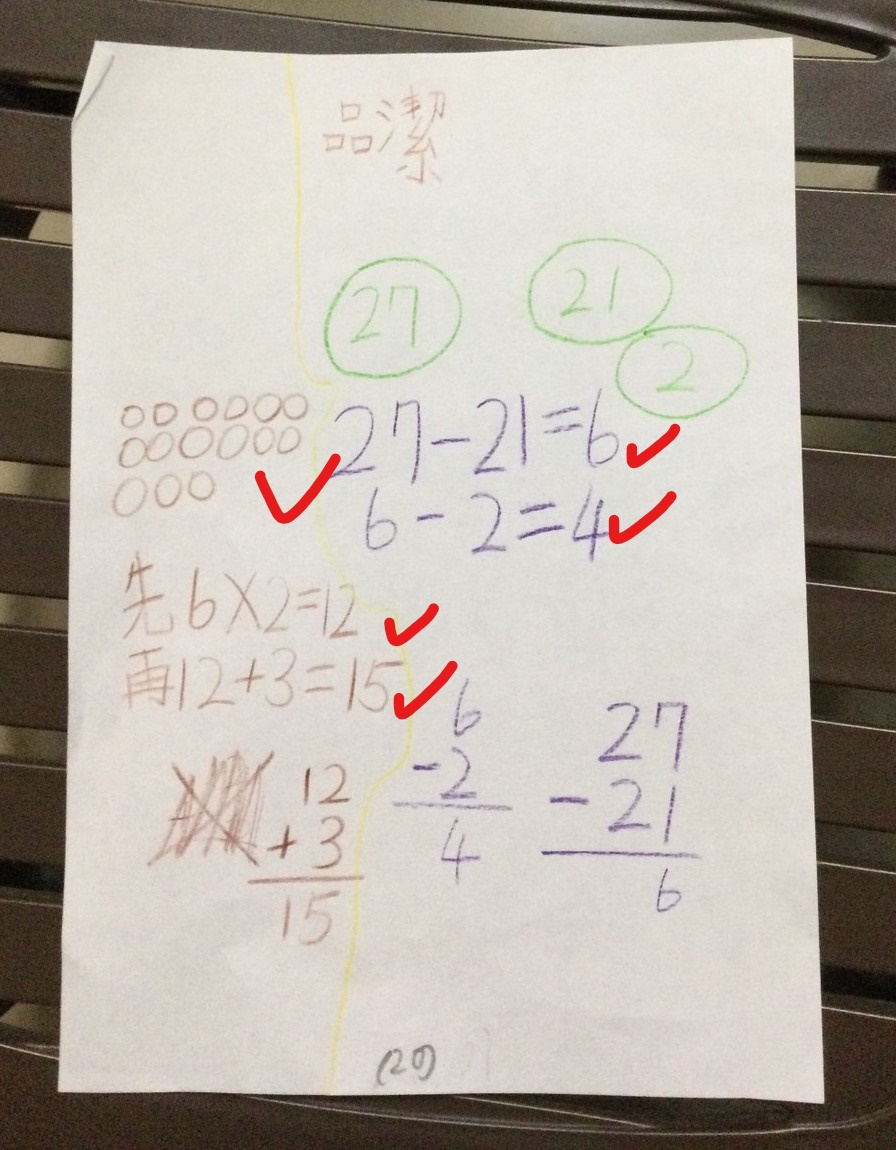 品潔
27 21
2
27-21=6
6-2=4
先6×2=12
再12+3=15
12
+3
15
6
-2
4
27
-21
6
(20)